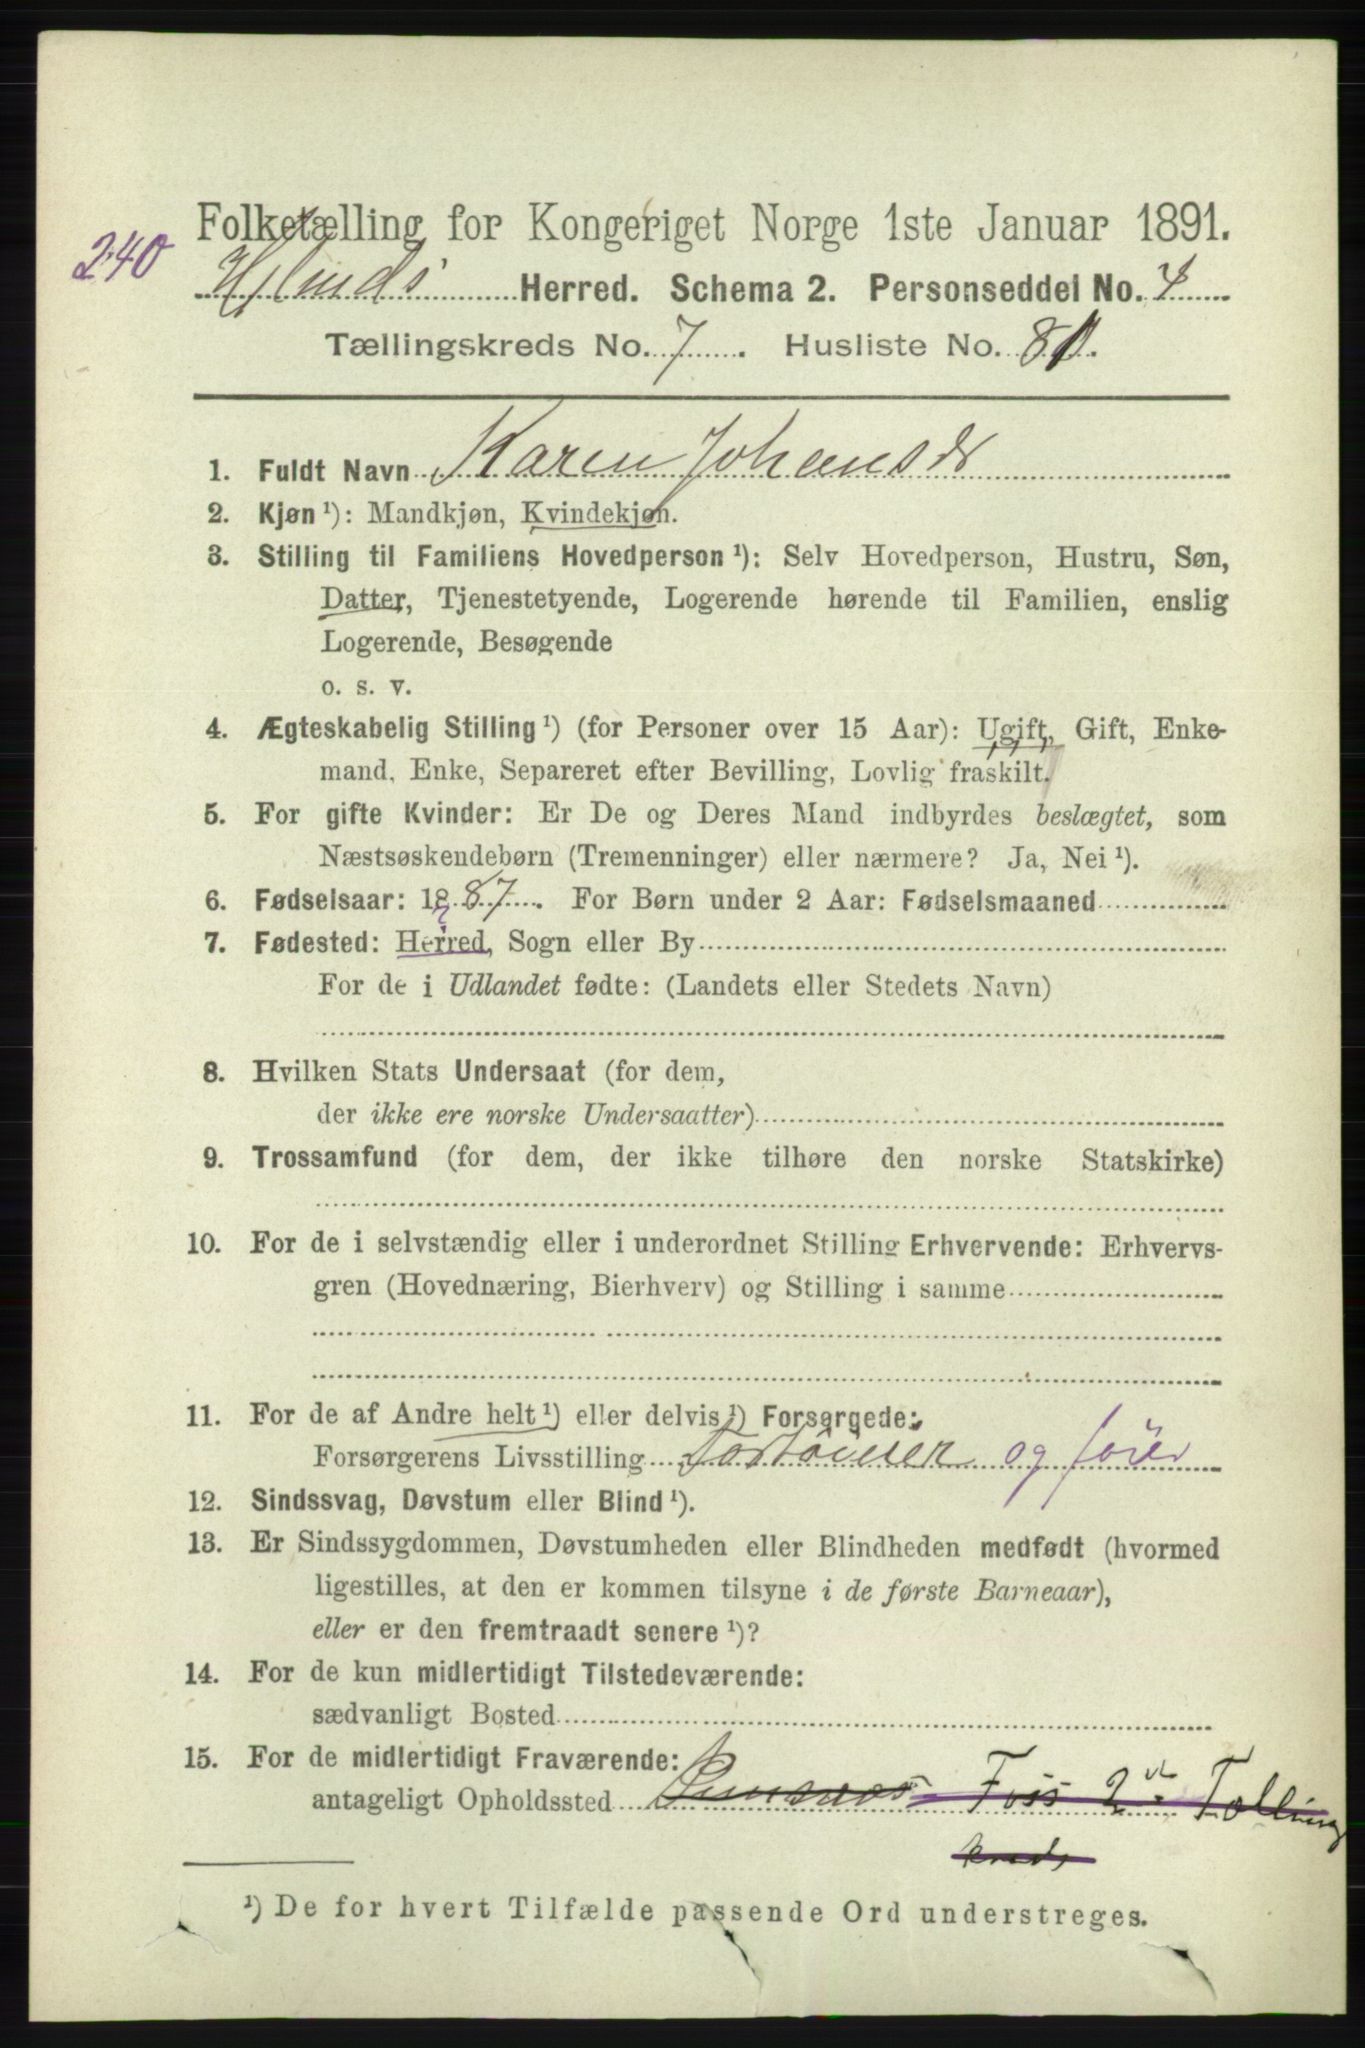 Folketælling for Kongeriget Norge 1ste Januar 1891.
240
Herred. Schema 2. Personseddel No. 4
Tællingskreds No. 7. Husliste No. 81.
1. Fuldt Navn Karen Johansdr
2. Kjøn ¹): Mandkjøn, Kvindekjøn.
3. Stilling til Familiens Hovedperson ¹): Selv Hovedperson, Hustru, Søn,
Datter, Tjenestetyende, Logerende hørende til Familien, enslig
Logerende, Besøgende
o. s. v.
4. Ægteskabelig Stilling ¹) (for Personer over 15 Aar): Ugift, Gift, Enke-
mand, Enke, Separeret efter Bevilling, Lovlig fraskilt.
5. For gifte Kvinder: Er De og Deres Mand indbyrdes beslægtet, som
Næstsøskendebørn (Tremenninger) eller nærmere? Ja, Nei ¹).
6. Fødselsaar: 1887. For Børn under 2 Aar: Fødselsmaaned
7. Fødested: Herred, Sogn eller By
For de i Udlandet fødte: (Landets eller Stedets Navn)
8. Hvilken Stats Undersaat (for dem,
der ikke ere norske Undersaatter)
9. Trossamfund (for dem, der ikke tilhøre den norske Statskirke)
10. For de i selvstændig eller i underordnet Stilling Erhvervende: Erhvervs-
gren (Hovednæring, Bierhverv) og Stilling i samme
11. For de af Andre helt ¹) eller delvis ¹) Forsørgede:
Forsørgerens Livsstilling og
12. Sindssvag, Døvstum eller Blind ¹).
13. Er Sindssygdommen, Døvstumheden eller Blindheden medfødt (hvormed
ligestilles, at den er kommen tilsyne i de første Barneaar),
eller er den fremtraadt senere ¹)?
14. For de kun midlertidigt Tilstedeværende:
sædvanligt Bosted
15. For de midlertidigt Fraværende:
antageligt Opholdssted Foss 2 Tælling
kreds
¹) De for hvert Tilfælde passende Ord understreges.